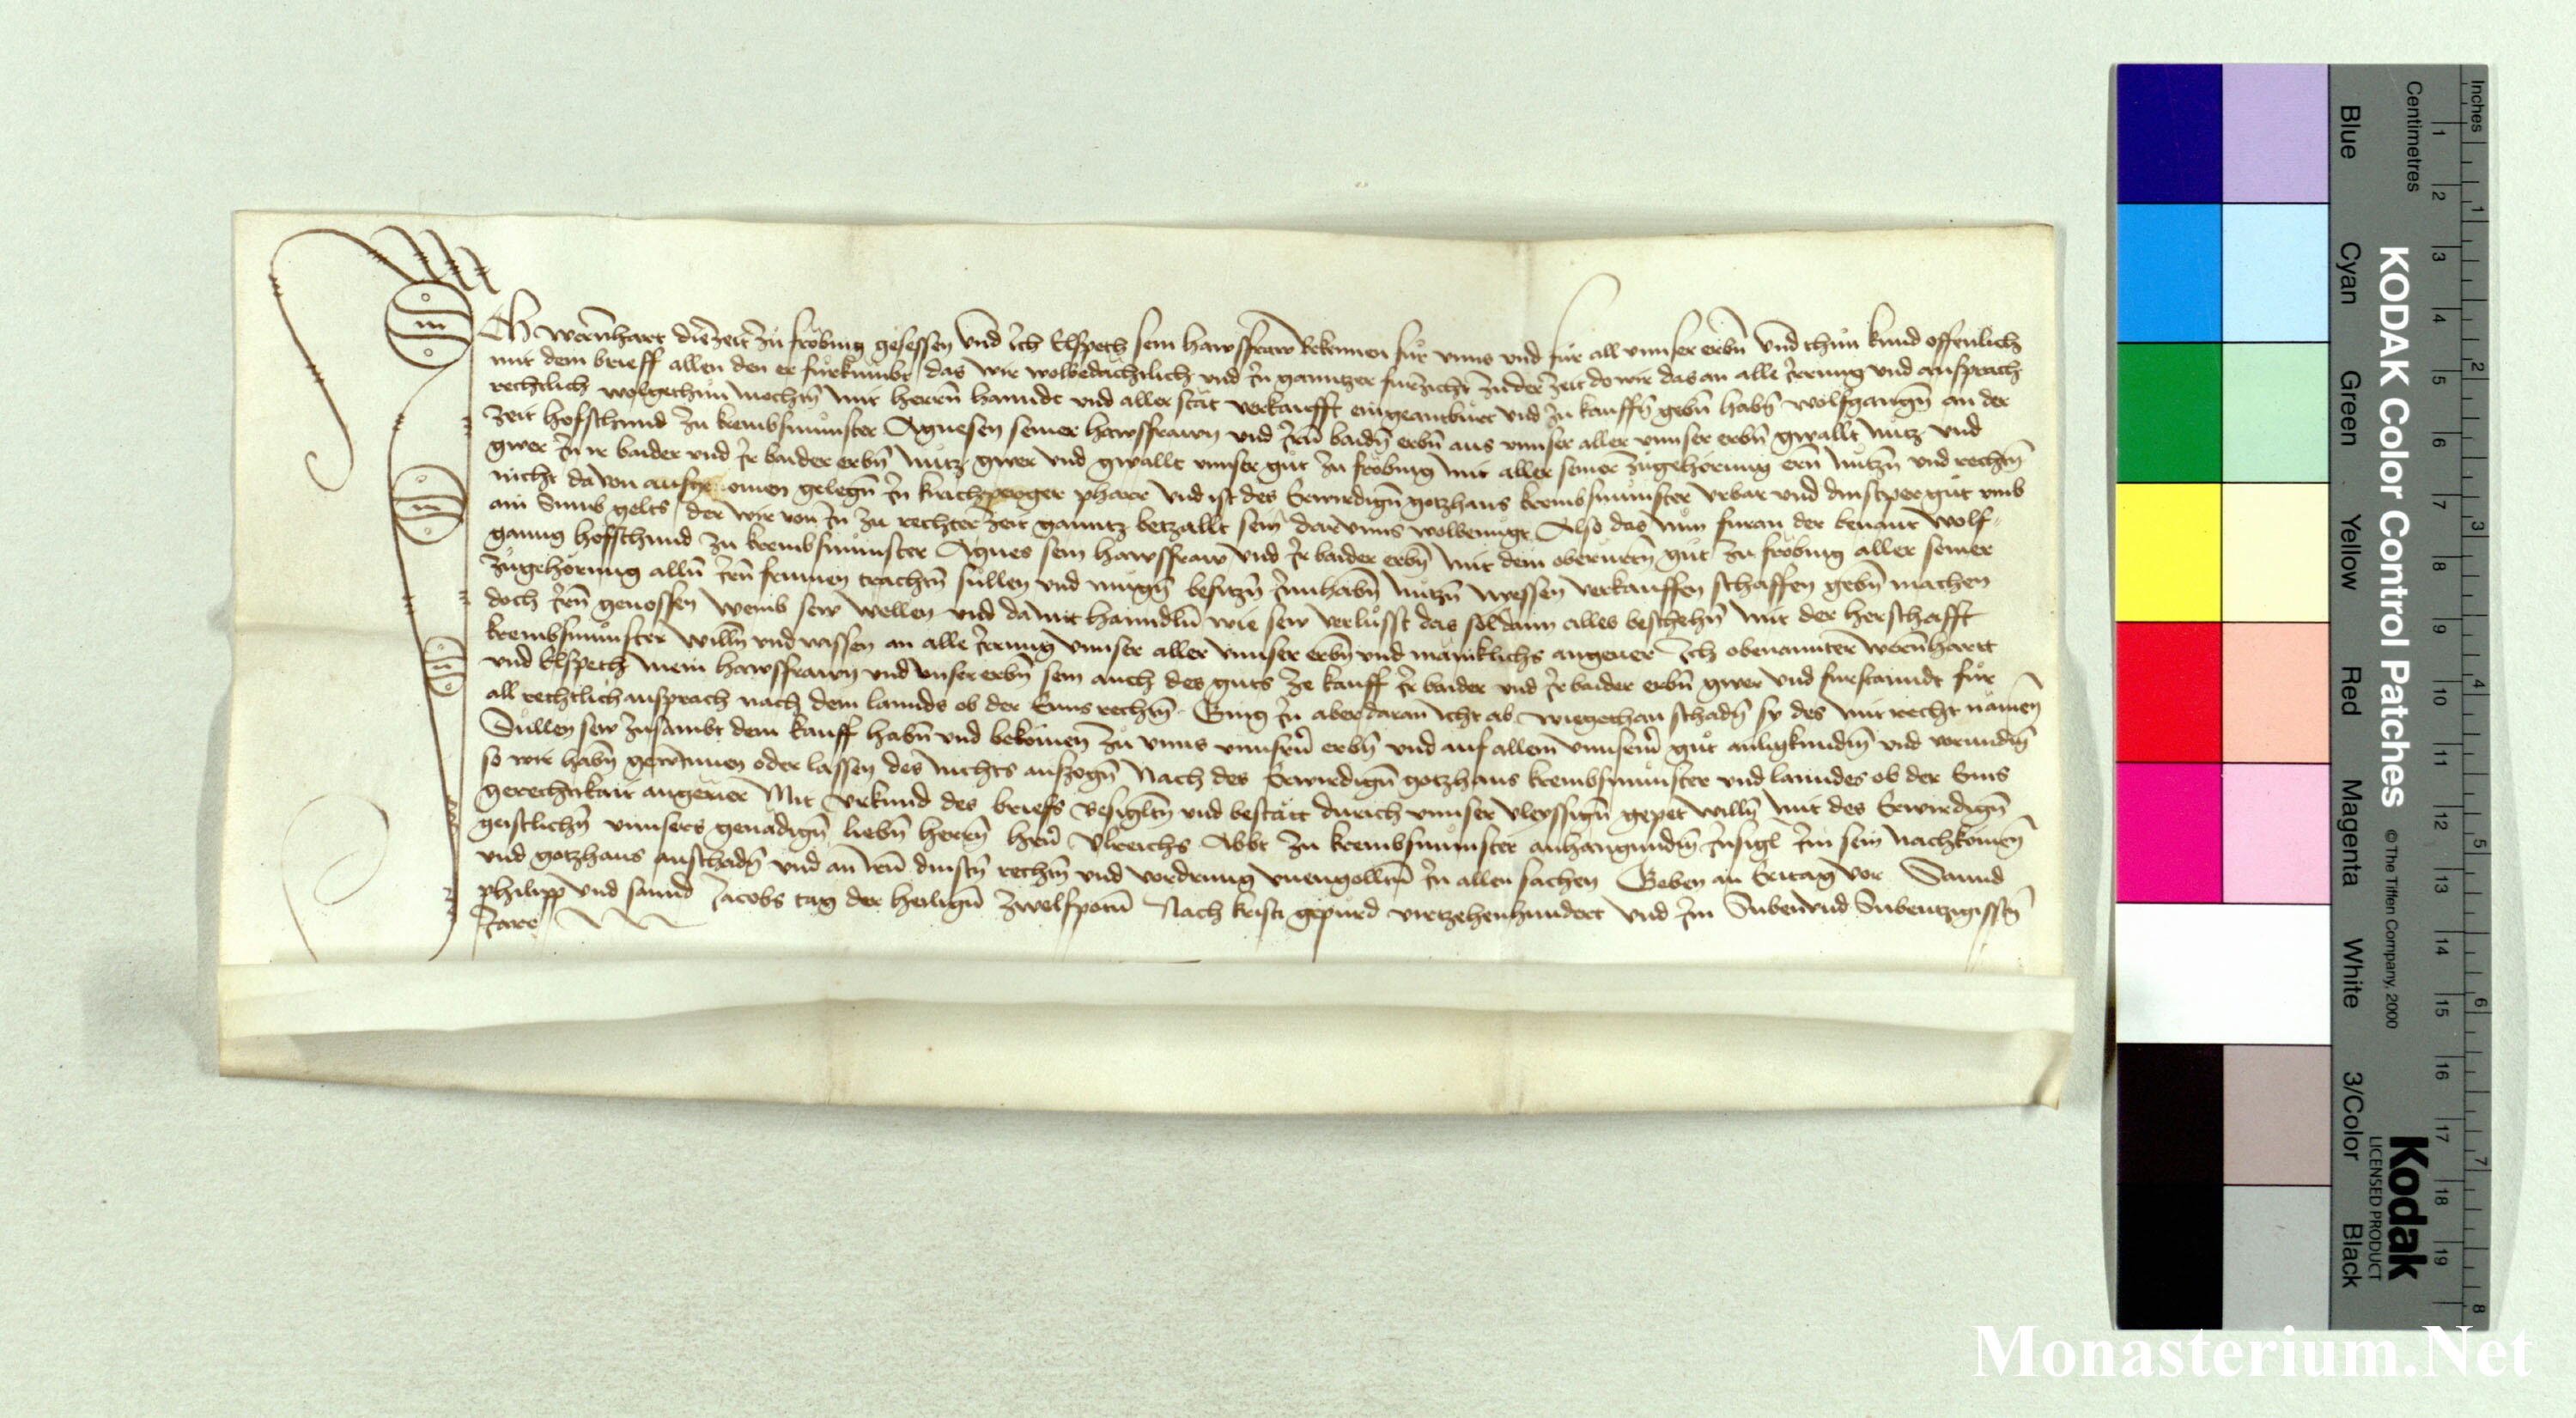 Ich wernhart diezeit zu frobing gesessen vnd ich Elspeth sein hawsfraw bekennen fur vnns vnd fur all vnnser erbn vnd thun kund offenlich
mit dem brieff allen den er furkumbt das wir wolbedachtlich vnd in ganntzer furzicht zu der zeit do wir das an alle irrung vnd ansprach
rechtlich wolgethun mochtn mit herrn hanndt vnd aller stät verkaufft eingeantburt vnd zu kauffn gebn habn wolfgangn an der
zeit hofschmid zu krembsmunster Agnesen seiner hawsfrawn vnd irn baidn erbn aus vnnser aller vnnser erbn gwallt nutz vnd
gwer in ir baider vnd ir baider erbn nutz gwer vnd gwallt vnnser gut zu frobing mit aller seiner zugehorung ern nutzn vnd rechtn
nicht dauon ausgenomen gelegn in kirichperger pharr vnd ist des Erwirdign gotzhaus krembsmunster vrbar vnd dinstper gut vmb
ain Sumb gelts der wir von in zu rechter zeit ganntz betzallt sein dar vnns wolbenugt Also das nun furan der benant wolf-
ganng hofschmid zu krembsmunster Agnes sein hawsfraw vnd ir baider erbn mit dem obernentn gut zu frobing aller seiner
zugehorung alln irn frumen trachtn sullen vnd mugn besitzn innhabn nutzn niessen verkauffen schaffen gebn machen
doch irn genossen wemb sew wellen vnd damit hanndln wie sew verlusst das sol dann alles beschehn mit der herschafft
krembsmunster willn vnd wissen an alle irrung vnnser aller vnnser erbn vnd manikлichs angeuer Ich obenannter wernhartt
vnd Elspeth mein hawsfrawn vnd vnser erbn sein auch des guts ze kauff ir baider vnd ir baider erbn gwer vnd furstanndt fur
all rechtlich ansprach nach dem lannds ob der Enns rechtn Ging in aber daran icht ab wiegethan schadn sy des mit recht namen
Sullen sew zusambt dem kauff habn vnd bekomen zu vnns vnnsern erbn vnd auf allem vnnserm gut anligkundm vnd varundm
so wir habn gewinnen oder lassen des nichts ausgzogn Nach des Erwirdign gotzhaus krembsmunster vnd lanndes ob der Enns
gerechtikait angeuer Mit vrkund des brieffs Besigltn vnd bestatt durich vnnser vleyssign gepet willn mit des Erwirdign
geistlichn vnnsers genadign liebn herrn hern Vlreichs Abbt zu krembsmunster anhangundm insigl im sein nachkomen
vnd gotzhaus anschadn vnd an irn dinstn rechtn vnd vordrung vnengolltn in allen sachen Geben an Eritag vor Sannd
philipp vnd sannd Jacobs tag der heilign zwelfpotn Nach kristi gepurd viertzehenhundert vnd im Subenvnd Subentzigisstn
Jare
KODAK Color Control Patches
© The Tiffen Company, 2000
Kodak
LICENSED PRODUCT
Inches
Centimetres
Blue
Cyan
Green
Yellow
Red
Magenta
White
3/Color
Black
1 2 3 4 5 6 7 8 9 10 11 12 13 14 15 16 17 18 19
1 2 3 4 5 6 7 8
Monasterium.Net